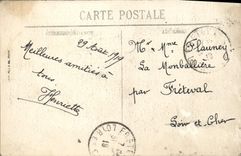 CARTE POSTALE
29 Août 1919
Meilleures amitiés à
tous
Henriette
Mr Mme Flauney
La Monballière
par Fréteval
Loir et Cher